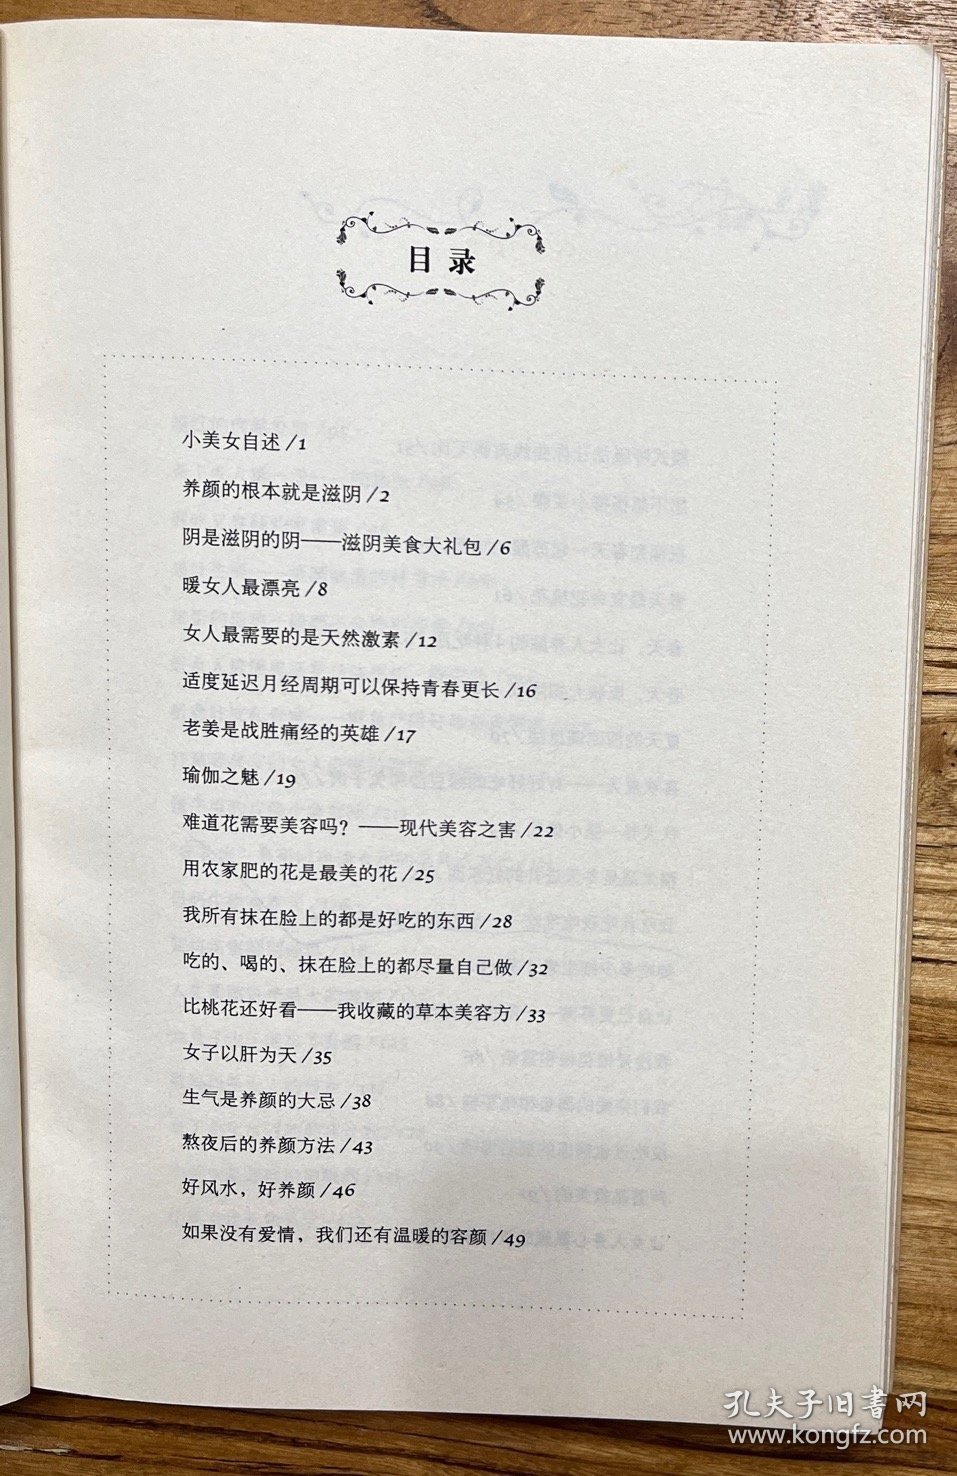 目录
小美女自述/1
养颜的根本就是滋阴/2
阴是滋阴的阴——滋阴美食大礼包/6
暖女人最漂亮/8
女人最需要的是天然激素/12
适度延迟月经周期可以保持青春更长/16
老姜是战胜痛经的英雄/17
瑜伽之魅/19
难道花需要美容吗？——现代美容之害/22
用农家肥的花是最美的花/25
我所有抹在脸上的都是好吃的东西/28
吃的、喝的、抹在脸上的都尽量自己做/32
比桃花还好看——我收藏的草本美容方/33
女子以肝为天/35
生气是养颜的大忌/38
熬夜后的养颜方法/43
好风水，好养颜/46
如果没有爱情，我们还有温暖的容颜/49
孔夫子旧书网
www.kongfz.com